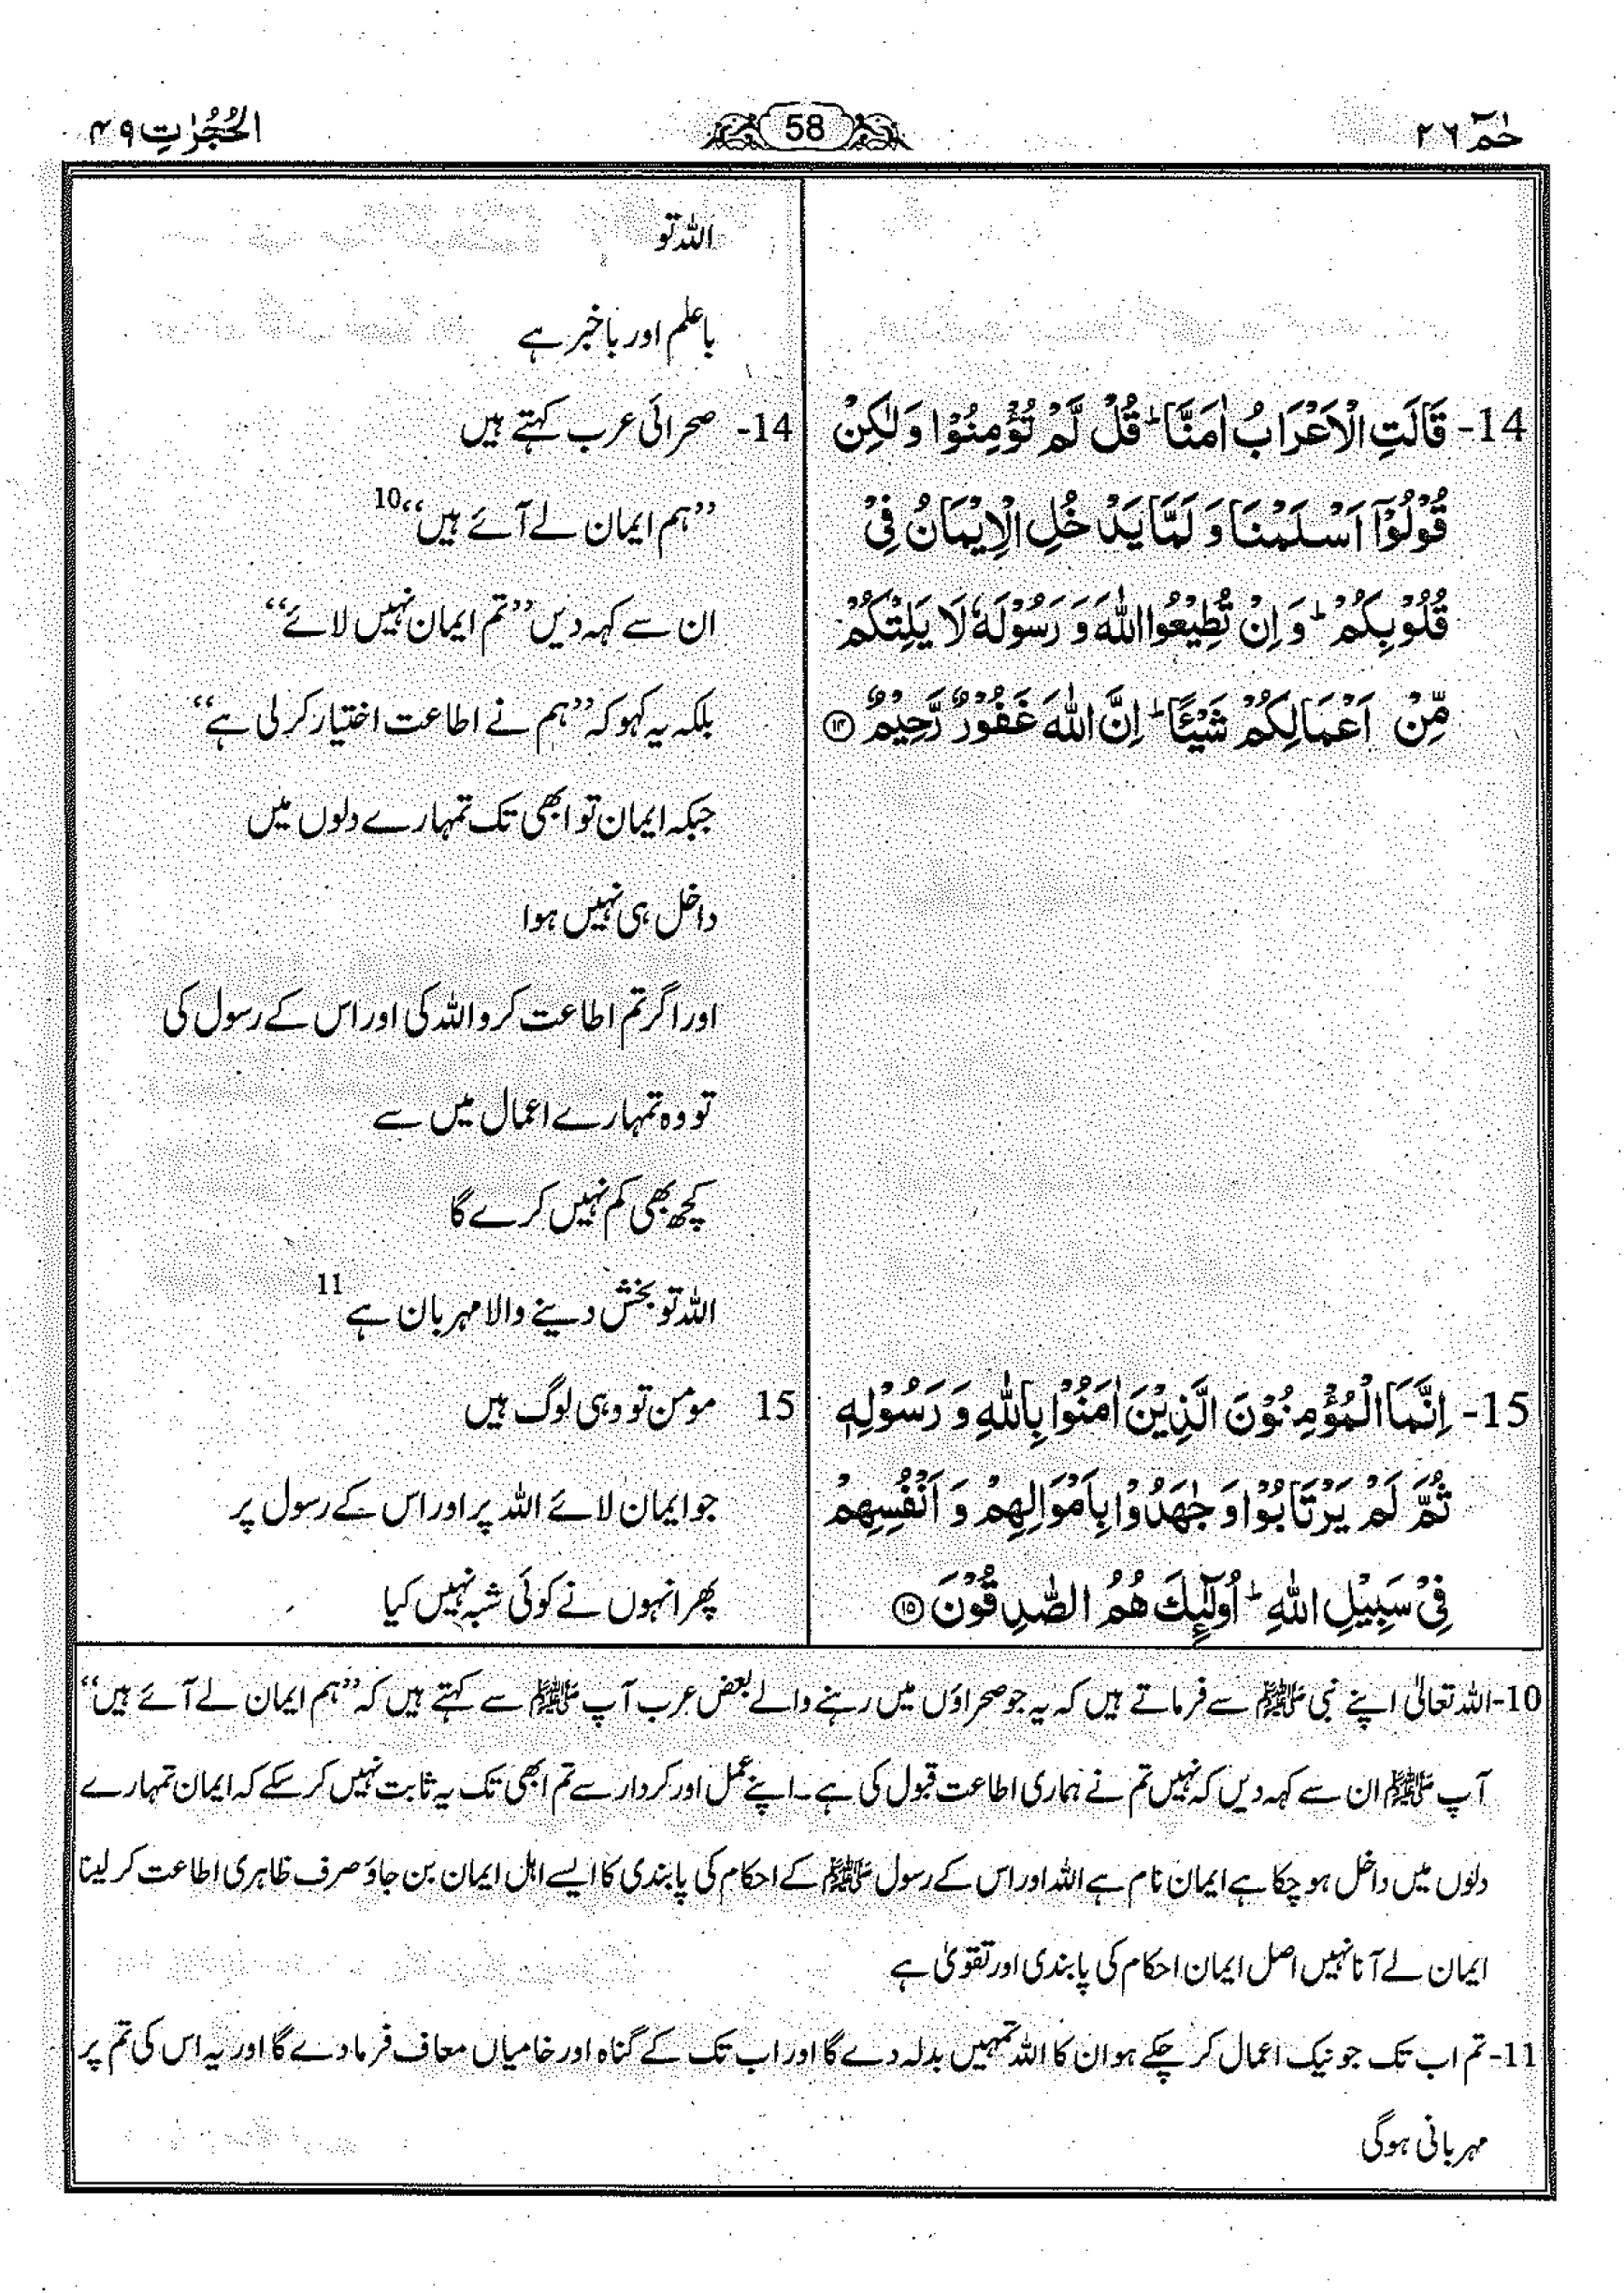 حٰمٓ ٢٦
58
الْحُجُرٰتِ ٤٩
14- قَالَتِ الْاَعْرَابُ اٰمَنَّا ؕ قُلْ لَّمْ تُؤْمِنُوْا وَ لٰكِنْ
قُوْلُوْۤا اَسْلَمْنَا وَ لَمَّا يَدْخُلِ الْاِيْمَانُ فِیْ
قُلُوْبِكُمْ ؕ وَ اِنْ تُطِيْعُوا اللّٰهَ وَ رَسُوْلَهٗ لَا يَلِتْكُمْ
مِّنْ اَعْمَالِكُمْ شَيْـًٔا ؕ اِنَّ اللّٰهَ غَفُوْرٌ رَّحِيْمٌ ﴿۱۴﴾
15- اِنَّمَا الْمُؤْمِنُوْنَ الَّذِيْنَ اٰمَنُوْا بِاللّٰهِ وَ رَسُوْلِهٖ
ثُمَّ لَمْ يَرْتَابُوْا وَ جٰهَدُوْا بِاَمْوَالِهِمْ وَ اَنْفُسِهِمْ
فِیْ سَبِيْلِ اللّٰهِ ؕ اُولٰٓئِكَ هُمُ الصّٰدِقُوْنَ ﴿۱۵﴾
اللہ تو
باعلم اور باخبر ہے
14- صحرائی عرب کہتے ہیں
”ہم ایمان لے آئے ہیں“10
ان سے کہہ دیں ”تم ایمان نہیں لائے“
بلکہ یہ کہو کہ ”ہم نے اطاعت اختیار کر لی ہے“
جبکہ ایمان تو ابھی تک تمہارے دلوں میں
داخل ہی نہیں ہوا
اور اگر تم اطاعت کرو اللہ کی اور اس کے رسول کی
تو وہ تمہارے اعمال میں سے
کچھ بھی کم نہیں کرے گا
اللہ تو بخش دینے والا مہربان ہے 11
15 مومن تو وہی لوگ ہیں
جو ایمان لائے اللہ پر اور اس کے رسول پر
پھر انہوں نے کوئی شبہ نہیں کیا
10- اللہ تعالیٰ اپنے نبی ﷺ سے فرماتے ہیں کہ یہ جو صحراؤں میں رہنے والے بعض عرب آپ ﷺ سے کہتے ہیں کہ ”ہم ایمان لے آئے ہیں“
آپ ﷺ ان سے کہہ دیں کہ نہیں تم نے ہماری اطاعت قبول کی ہے۔ اپنے عمل اور کردار سے تم ابھی تک یہ ثابت نہیں کر سکے کہ ایمان تمہارے
دلوں میں داخل ہو چکا ہے ایمان نام ہے اللہ اور اس کے رسول ﷺ کے احکام کی پابندی کا ایسے اہل ایمان بن جاؤ صرف ظاہری اطاعت کر لینا
ایمان لے آنا نہیں اصل ایمان احکام کی پابندی اور تقویٰ ہے
11- تم اب تک جو نیک اعمال کر چکے ہو ان کا اللہ تمہیں بدلہ دے گا اور اب تک کے گناہ اور خامیاں معاف فرما دے گا اور یہ اس کی تم پر
مہربانی ہوگی